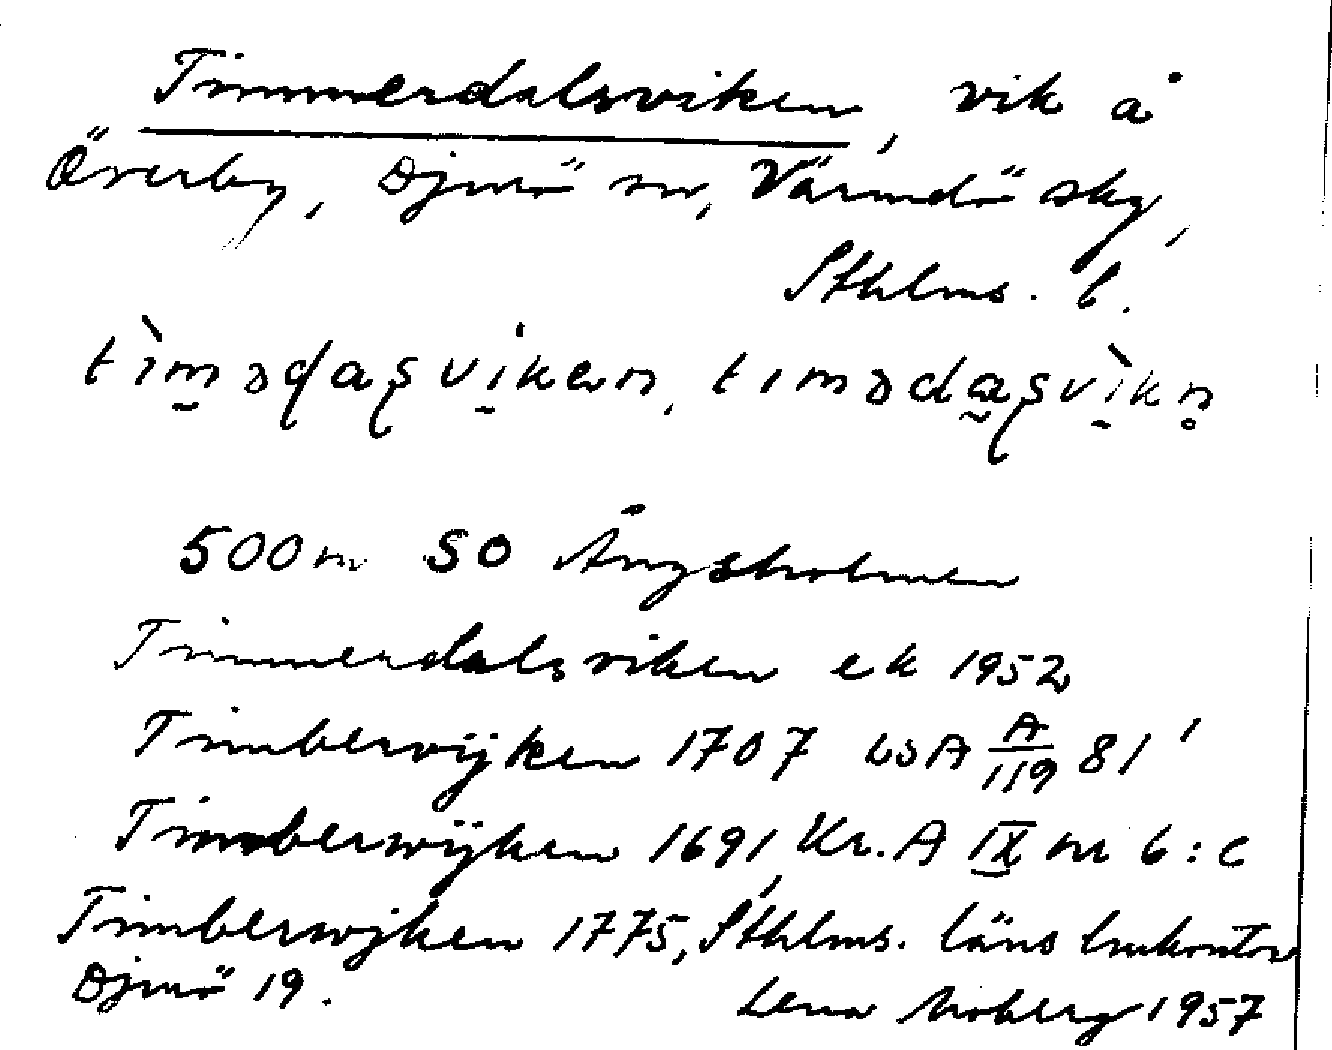 Timmerdalsviken, vik å
Överby, Djurö sn, Värmdö sky,
Sthlms. l.
500 m SO Ängsholmen
Timmerdalsviken ek 1952
Timberwijken 1707 LSA A/119 81'
Timberwijken 1691, Kr. A IX nr 6:c
Timberwijken 1775, Sthlms. läns lmkontor
Djurö 19.
Lena Moberg 1957